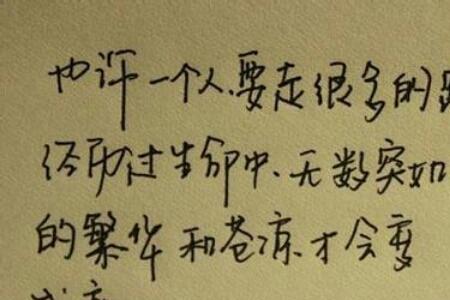 也许一个人、要走很多的路
经历过生命中、无数突如
的繁华和苍凉、才会变